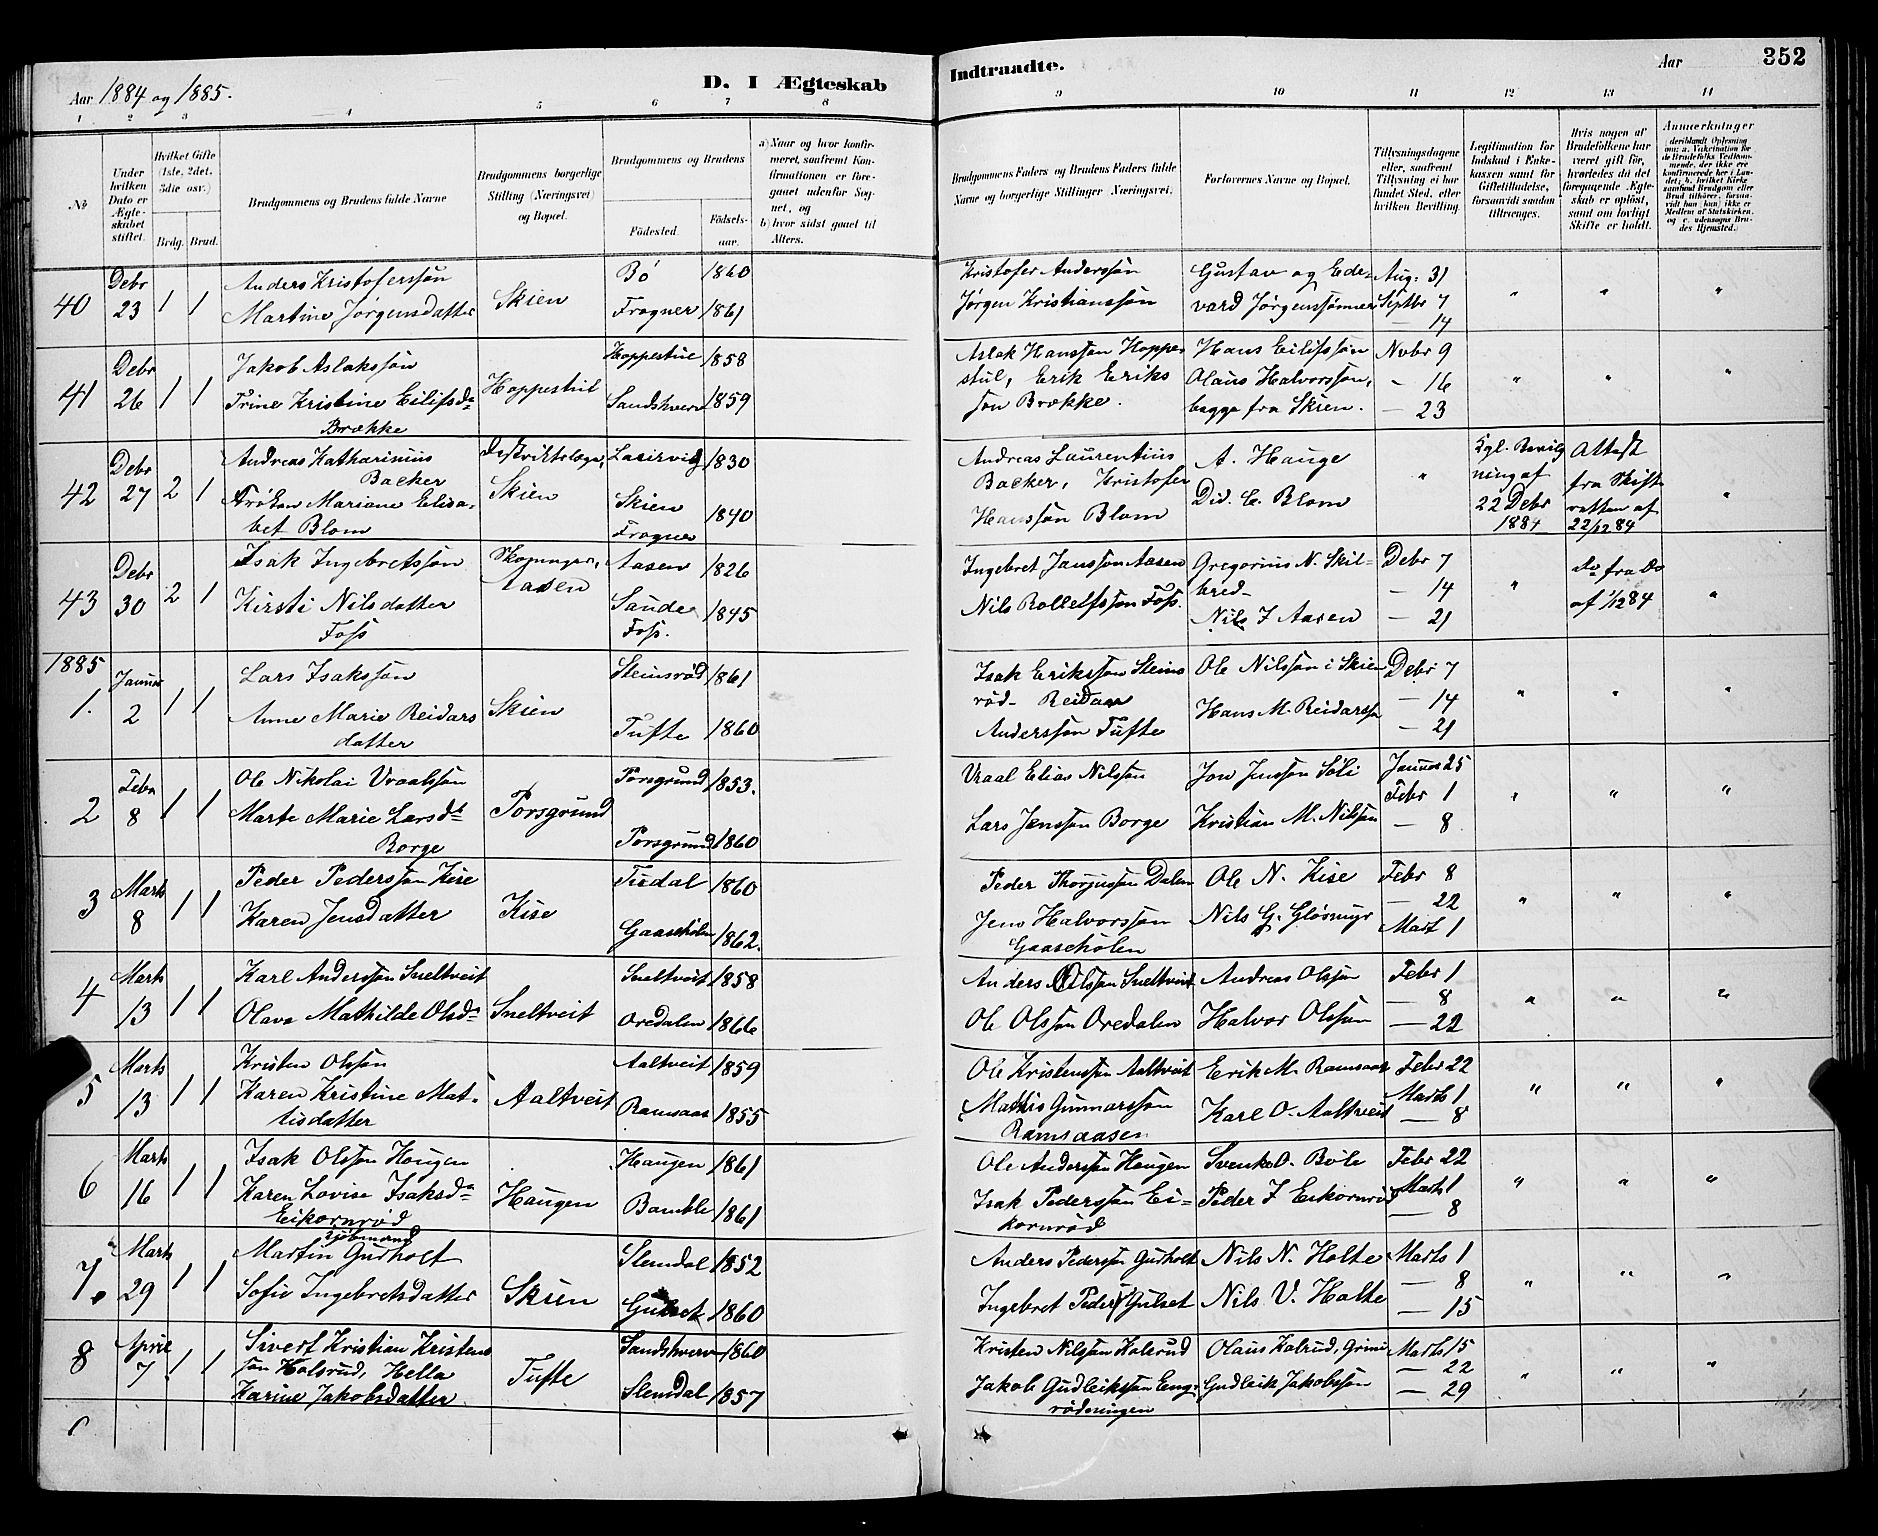 Aar 1884 og 1885.
D. I Ægteskab
Indtraadte.
Aar
352
1 2 3 4 5 6 7 8 9 10 11 12 13 14
No
Under hvilken Dato er Ægteskabet stiftet.
Hvilket Gifte (1ste, 2det, 3die osv.)
Brdg. Brud.
Brudgommens og Brudens fulde Navne
Brudgommens borgerlige Stilling (Næringsvei) og Bopæl.
Brudgommens og Brudens
Födested.
Födselsaar.
a) Naar og hvor konfirmeret, saafremt Konfirmationen er foregaaet udenfor Sognet, og
b) hvor sidst gaaet til Alters.
Brudgommens Faders og Brudens Faders fulde Navne og borgerlige Stillinger (Næringsvei.
Forlovernes Navne og Bopæl.
Tillysningsdagene eller, saafremt Tillysning ei har fundet Sted, efter hvilken Bevilling.
Legitimation for Indskud i Enkekassen samt for Giftetilladelse, forsaavidt saadan tiltrenges.
Hvis nogen af Brudefolkene har været gift för, hvorledes da det foregaaende Ægteskab er oplöst, samt om lovligt Skifte er holdt.
Anmærkninger
40 Debr 23 1 1
Anders Kristoferssøn
Martine Jørgensdatter
Skien
Bö 1860
Frogner 1861
Kristofer Anderssøn
Jørgen Kristianssøn
Gustav og Ede-
vard Jørgenssønner
Aug: 31
Septbr 7
— 14
" " "
41 Debr 26 1 1
Jakob Aslakssøn
Trine Kristine Eilifsdr
Brække
Hoppestul
Hoppestul 1858
Sandshverv 1859
Aslak Hanssøn Hoppe-
stul, Erik Eriks
søn Brække.
Hans Eilifssøn
Olaus Halvorssøn,
begge fra Skien.
Novbr 9
- 16
— 23
" " "
42 Debr 27 2 1
Andreas Katharinius
Backer
Frøken Mariane Elisa-
bet Blom
Distriktslæge,
Skien
Laurvig 1830
Skien
Frogner 1840
Andreas Laurentius
Backer, Kristofer
Hanssøn Blom
A. Hauge
Did. C. Blom
"
Kgl. Bevilg
ning af
22 Debr
1884
Attest
fra Skift
retten af
22/12 84
"
43 Debr 30 2 1
Isak Ingebretssøn
Kirsti Nilsdatter
Foss
Aasen
Aasen 1826
Saude
Foss. 1845
Ingebret Janssøn Aasen
Nils Rollefssøn Foss.
Gregorius N. Skil-
bred-
Nils I Aasen
Debr 7
— 14
— 21
"
Do fra Do
af 1/12 84
"
1885
1. Januar 2 1 1
Lars Isakssøn
Anne Marie Reidars
datter
Skien
Steinsrød 1861
Tufte 1860
Isak Erikssøn Steins
rød- Reidar
Anderssøn Tufte
Ole Nilssøn i Skien
Hans M. Reidarssøn
Debr 7
— 14
— 21
" " "
2 Febr 8 1 1
Ole Nikolai Vraalssøn
Marte Marie Larsdr
Borge
Porsgrund
Porsgrund 1853.
Porsgrund 1860
Vraal Elias Nilssøn
Lars Jenssøn Borge
Jon Jenssøn Søli
Kristian M. Nilssøn
Januar 25
Febr 1
— 8
" " "
3 Marts 8 1 1
Peder Pederssøn Kise
Karen Jensdatter
Kise
Tisdal 1860
Gaasehølen 1862.
Peder Thorjussøn Dalen
Jens Halvorssøn
Gaasehølen
Ole N. Kise
Nils G. Gløsmyr
Febr 8
— 22
Mart 1
" " "
4 Marts 13 1 1
Karl Anderssøn Sneltveit
Olava Mathilde Olsdr
Sneltveit
Sneltveit 1858
Oredalen 1866
Anders Olssøn Sneltveit
Ole Olssøn Oredalen
Andreas Olssøn
Halvor Olssøn
Febr 1
— 8
— 22
" " "
5 Marts 13 1 1
Kristen Olssøn
Karen Kristine Mat-
tisdatter
Aaltveit
Aaltveit 1859
Ramsaas 1855
Ole Kristenssøn Aaltveit
Mathis Gunnarssøn
Ramsaasen
Erik M. Ramsaas
Karl O. Aaltveit
Febr 22
Marts 1
— 8
" " "
6 Marts 16 1 1
Isak Olssøn Haugen
Karen Lovise Isaksdr
Eikornrød
Haugen
Haugen 1861
Bamble 1861
Ole Anderssøn Haugen
Isak Pederssøn Ei-
kornrød
Svenke O. Bøle
Peder I Eikornrød
Febr 22
Marts 1
— 8
" " "
7. Marts 29 1 1
Sjømand
Martin Gurholt
Sofie Ingebretsdatter
Skien
Slemdal 1852
Gulset 1860
Anders Pederssøn Gurholt
Ingebret Peders Gulset
Nils N. Holte
Nils V. Holte
Marts 1
— 8
— 15
" " "
8 April 7 1 1
Sivert Kristian Kristens
søn Kalsrud, Hella
Karine Jakobsdatter
Tufte
Sandshverv 1860
Slemdal 1857
Kristen Nilssøn Kalsrud
Jakob Gudleikssøn Eng-
rødningen
Olaus Kalsrud, Grini
Gudleik Jakobssøn
Marts 15
— 22
— 29
" " "